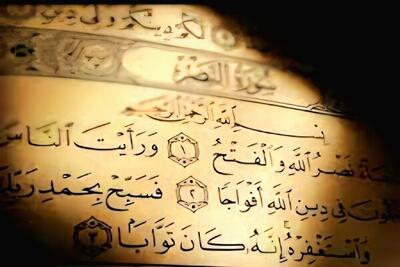 لَكُمْ دِينُكُمْ وَلِيَ دِينِ
سُورَةُ النَّصْرِ
بِسْمِ اللَّهِ الرَّحْمَٰنِ الرَّحِيمِ
نَصْرُ اللَّهِ وَالْفَتْحُ ١ وَرَأَيْتَ النَّاسَ
فِي دِينِ اللَّهِ أَفْوَاجًا ٢ فَسَبِّحْ بِحَمْدِ رَبِّكَ
وَاسْتَغْفِرْهُ إِنَّهُ كَانَ تَوَّابًا ٣